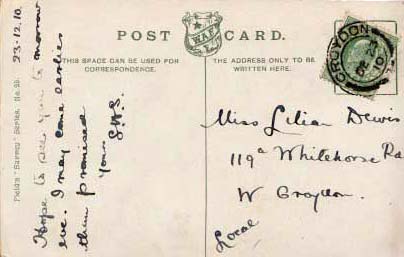 POST CARD.
WAF
THIS SPACE CAN BE USED FOR
CORRESPONDENCE.
THE ADDRESS ONLY TO BE
WRITTEN HERE.
23.12.10.
Hope to see you to morrow
eve. I may come earlier
than promised
Yours
Field's "Surrey" Series. No.
CROYDON
Miss Lilian Dewis
119a Whitehorse Rd
W Croydon.
Local